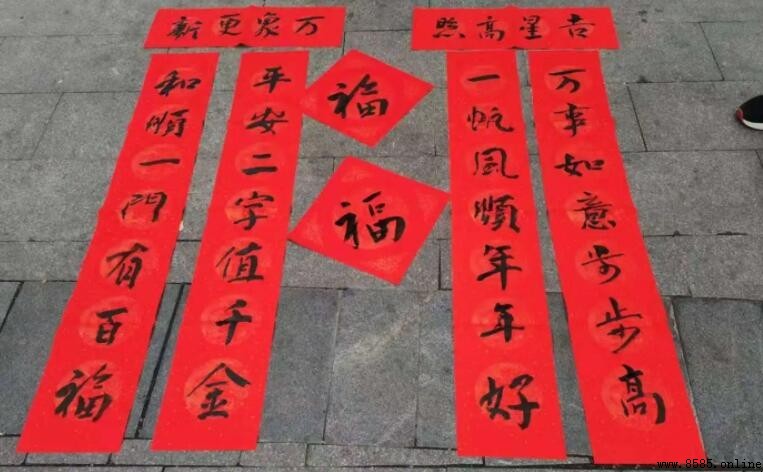 万象更新
吉星高照
万事如意步步高
一帆風順年年好
福
福
平安二字值千金
和順一門有百福
www.8585.online